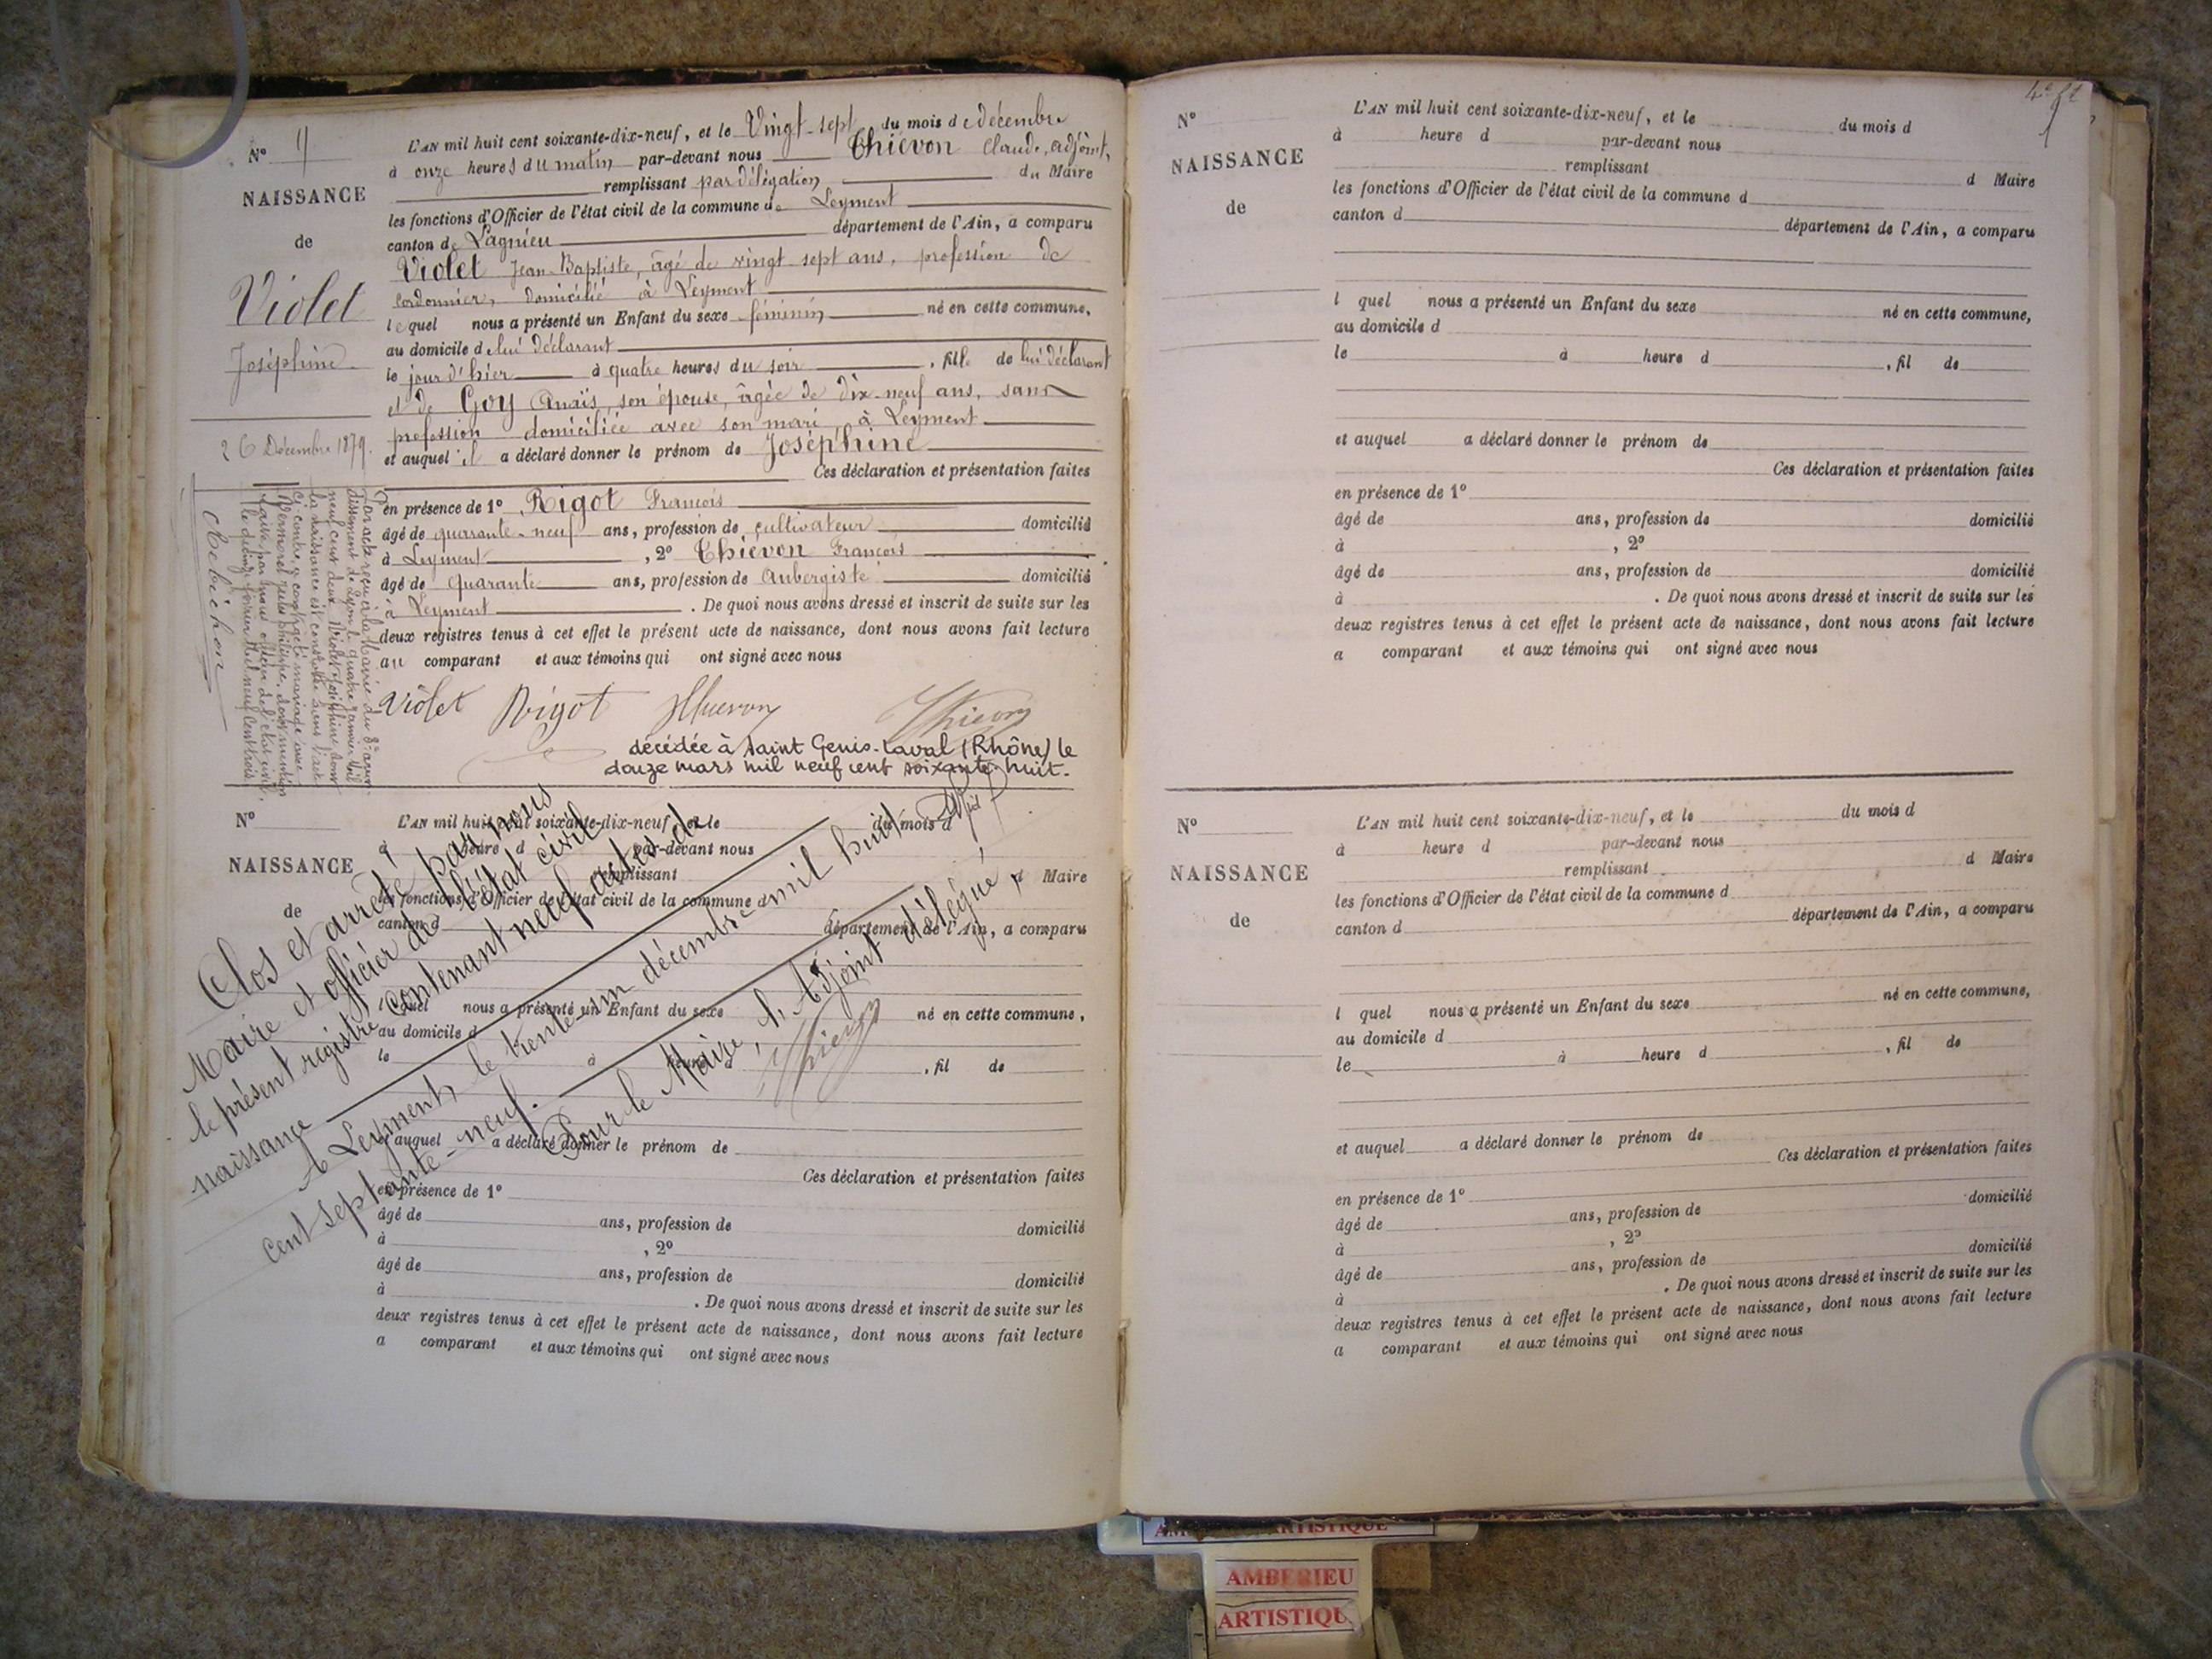 N° 9
NAISSANCE
de
Violet
Joséphine
26 Décembre 1879.
L'AN mil huit cent soixante-dix-neuf, et le Vingt-sept du mois de décembre
à onze heures du matin par-devant nous Thiévon Claude, adjoint,
remplissant par délégation du Maire
les fonctions d'Officier de l'état civil de la commune de Leyment
canton de Lagnieu département de l'Ain, a comparu
Violet Jean-Baptiste, âgé de vingt-sept ans, profession de
cordonnier, domicilié à Leyment
lequel nous a présenté un Enfant du sexe féminin né en cette commune,
au domicile de lui déclarant
le jour d'hier à quatre heures du soir, fille de lui déclarant
et de Goy Anaïs, son épouse, âgée de dix-neuf ans, sans
profession domiciliée avec son mari, à Leyment
et auquel il a déclaré donner le prénom de Joséphine
Ces déclaration et présentation faites
en présence de 1° Rigot François
âgé de quarante-neuf ans, profession de cultivateur domicilié
à Leyment, 2° Thiévon François
âgé de quarante ans, profession de Aubergiste domicilié
à Leyment. De quoi nous avons dressé et inscrit de suite sur les
deux registres tenus à cet effet le présent acte de naissance, dont nous avons fait lecture
au comparant et aux témoins qui ont signé avec nous
Violet Rigot Thievon Thievon
décédée à Saint Genis-Laval (Rhône) le
douze mars mil neuf cent soixante-huit.
Par acte reçu à la Mairie du 3e arron-
dissement de Lyon le quatre janvier mil
neuf cent deux Violet Joséphine dont
la naissance est constatée dans l'acte
ci contre a contracté mariage avec
Vermorel Jules Philippe, dont mention
faite par nous officier de l'état civil,
le février mil neuf cent trois
N°
NAISSANCE
de
L'AN mil huit cent soixante-dix-neuf, et le du mois d
à heure d par-devant nous
remplissant d Maire
les fonctions d'Officier de l'état civil de la commune d
canton d département de l'Ain, a comparu
l quel nous a présenté un Enfant du sexe né en cette commune,
au domicile d
le à heure d, fil de
et auquel a déclaré donner le prénom de
Ces déclaration et présentation faites
en présence de 1°
âgé de ans, profession de domicilié
à, 2°
âgé de ans, profession de domicilié
à. De quoi nous avons dressé et inscrit de suite sur les
deux registres tenus à cet effet le présent acte de naissance, dont nous avons fait lecture
a comparant et aux témoins qui ont signé avec nous
Clos et arrêté par nous
Maire et officier de l'état civil
le présent registre contenant neuf actes de
naissance
A Leyment, le trente-un décembre mil huit
cent septante-neuf.
Pour le Maire, l'Adjoint délégué,
Thievon
N°
NAISSANCE
de
L'AN mil huit cent soixante-dix-neuf, et le du mois d
à heure d par-devant nous
remplissant d Maire
les fonctions d'Officier de l'état civil de la commune d
canton d département de l'Ain, a comparu
l quel nous a présenté un Enfant du sexe né en cette commune,
au domicile d
le à heure d, fil de
et auquel a déclaré donner le prénom de
Ces déclaration et présentation faites
en présence de 1°
âgé de ans, profession de domicilié
à, 2°
âgé de ans, profession de domicilié
à. De quoi nous avons dressé et inscrit de suite sur les
deux registres tenus à cet effet le présent acte de naissance, dont nous avons fait lecture
a comparant et aux témoins qui ont signé avec nous
N°
NAISSANCE
de
L'AN mil huit cent soixante-dix-neuf, et le du mois d
à heure d par-devant nous
remplissant d Maire
les fonctions d'Officier de l'état civil de la commune d
canton d département de l'Ain, a comparu
l quel nous a présenté un Enfant du sexe né en cette commune,
au domicile d
le à heure d, fil de
et auquel a déclaré donner le prénom de
Ces déclaration et présentation faites
en présence de 1°
âgé de ans, profession de domicilié
à, 2°
âgé de ans, profession de domicilié
à. De quoi nous avons dressé et inscrit de suite sur les
deux registres tenus à cet effet le présent acte de naissance, dont nous avons fait lecture
a comparant et aux témoins qui ont signé avec nous
AMBERIEU
ARTISTIQUE